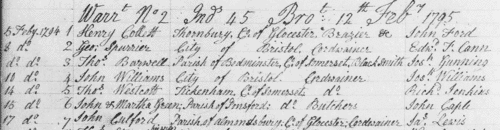 Warrt. No 2 Ind 45 Brot. 12th Feby 1795
5 Feby. 1794 1 Henry Collett Thornbury, Co. of Glocester Brazier &c John Ford
8 do 2 Geo: Spurrier City of Bristol Cordwainer Edwd. T. Cann
do do 3 Thos. Barwell Parish of Bedminster, C. of Somerset, Black Smith Jos: Gunning
10 do 4 John Williams City of Bristol Cordwainer Jos: Williams
14 do 5 Thos. Westcott Tickenham, C. of Somerset do Richd. Jenkins
16 do 6 John & Martha Green; Parish of Butchers John Caple
17 do 7 John Parish of Almondsbury C: of Glocester: Cordwainer Jas. Lewis